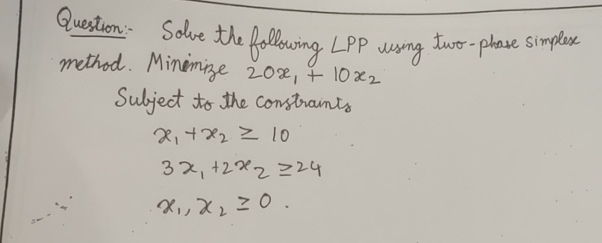 Question:- Solve the following LPP using two-phase simplex
method. Minimize 20x₁ + 10x₂
Subject to the constraints
x₁ + x₂ ≥ 10
3x₁ + 2x₂ ≥ 24
x₁, x₂ ≥ 0.